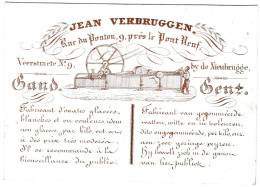 JEAN VERBRUGGEN.
Rue du Ponton, 9, près le Pont Neuf.
Veerstraete No 9, by de Nieubrugge,
Gand. Gent.
Fabricant d'ouates glacées,
blanches et en couleurs, idem
non glacées, par kilo, est-ouvert
à des prix très modérés.
Il se recommande à la
bienveillance du public.
Fabricant van gegommeerde
watten, witte en in couleuren,
dito ongegommeerde, per kilo,
aen zeer geringe pryzen.
Hy beveelt zich in de gunst
van het publiek.